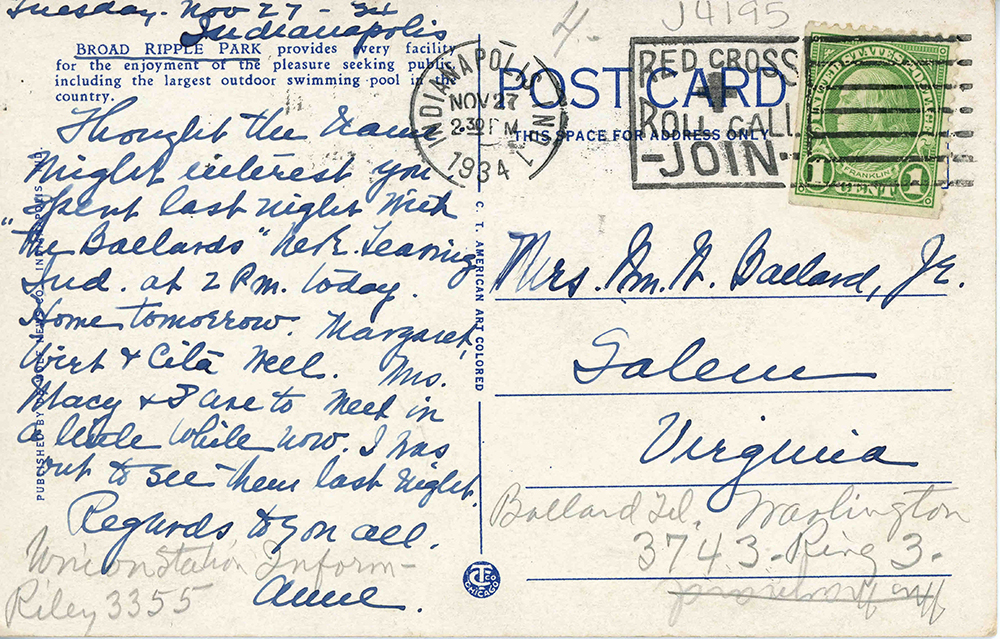 Tuesday. Nov 27 - 34
Indianapolis
BROAD RIPPLE PARK provides every facility
for the enjoyment of the pleasure seeking public
including the largest outdoor swimming pool in the
country.
Thought the name
might interest you
Spent last night with
"The Ballards" here. Leaving
Ind. at 2 P.m. today.
Home tomorrow. Margaret,
Wirt & Cita well. Mrs.
Macy & I are to meet in
a little while now. I was
out to see them last night.
Regards to you all.
Anne.
Union Station Inform-
Riley 3355
PUBLISHED BY NEWS CO., INDIANAPOLIS
C. T. AMERICAN ART COLORED
CTCO
CHICAGO
4-
J4195
INDIANAPOLIS, IND.
NOV 27
2:30 PM
1934
POST CARD
THIS SPACE FOR ADDRESS ONLY
RED CROSS
ROLL CALL
-JOIN-
UNITED STATES POSTAGE
FRANKLIN
1 CENT 1
Mrs. Wm. W. Ballard, Jr.
Salem
Virginia
Ballard Tel. Warlington
3743-Ring 3-